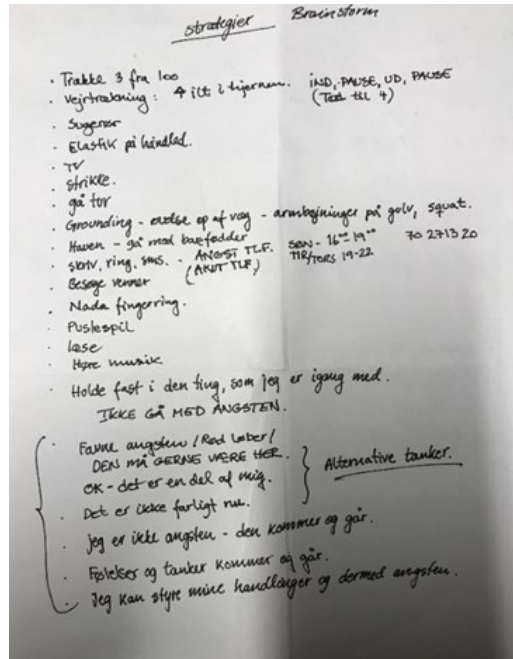 strategier Brainstorm
· Trække 3 fra 100
· Vejrtrækning: 4 ilt i hjernen. IND, PAUSE, UD, PAUSE
(Tæl til 4)
· Sugerør
· Elastik på håndled.
· TV
· strikke.
· gå tur
· Grounding - øvelse op af væg - armbøjninger på gulv, squat.
· Haven - gå med barfødder
· skriv, ring, sms. - ANGST TLF. SØN - 16⁰⁰ 19⁰⁰ 70 27 13 20
(AKUT TLF.) TIR/TORS 19-22
· Besøge venner
· Nada fingerring.
· Puslespil
· læse
· Høre musik
· Holde fast i den ting, som jeg er igang med.
IKKE GÅ MED ANGSTEN.
· Favne angsten / Rød løber /
DEN MÅ GERNE VÆRE HER.
OK - det er en del af mig. Alternative tanker.
· Det er ikke farligt nu.
· jeg er ikke angsten - den kommer og går.
· Følelser og tanker kommer og går.
· Jeg kan styre mine handlinger og dermed angsten.